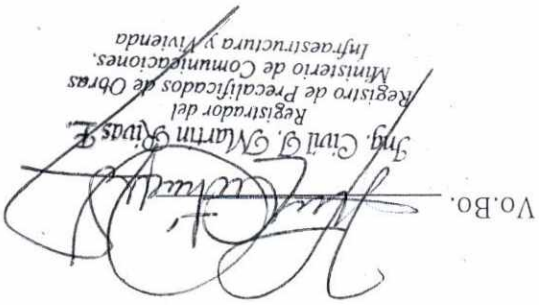 Vo.Bo.
Ing. Civil J. Martin Rivas F.
Registrador del
Registro de Precalificados de Obras
Ministerio de Comunicaciones.
Infraestructura y Vivienda